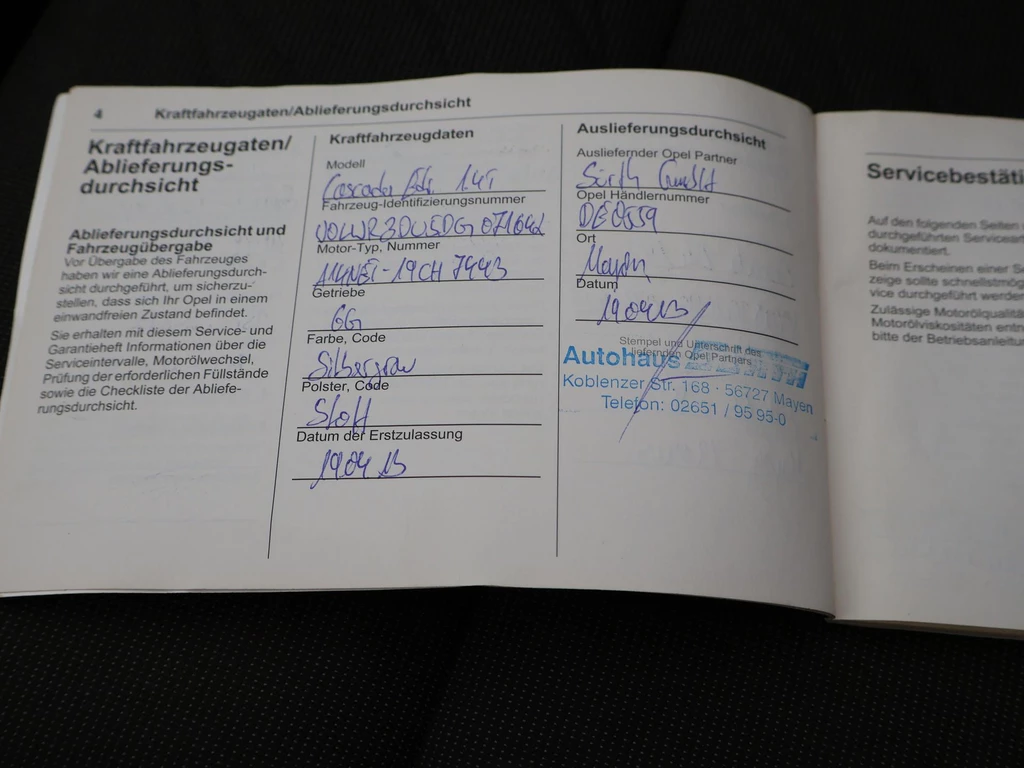 4 Kraftfahrzeugaten/Ablieferungsdurchsicht
Kraftfahrzeugaten/
Ablieferungs-
durchsicht
Ablieferungsdurchsicht und
Fahrzeugübergabe
Vor Übergabe des Fahrzeuges
haben wir eine Ablieferungsdurch-
sicht durchgeführt, um sicherzu-
stellen, dass sich Ihr Opel in einem
einwandfreien Zustand befindet.
Sie erhalten mit diesem Service- und
Garantieheft Informationen über die
Serviceintervalle, Motorölwechsel,
Prüfung der erforderlichen Füllstände
sowie die Checkliste der Abliefe-
rungsdurchsicht.
Kraftfahrzeugdaten
Modell
Cascada 1.4T
Fahrzeug-Identifizierungsnummer
Motor-Typ, Nummer
Getriebe
6G
Farbe, Code
Silbergrau
Polster, Code
Stoff
Datum der Erstzulassung
190413
Auslieferungsdurchsicht
Ausliefernder Opel Partner
Sürth GmbH
Opel Händlernummer
DE0659
Ort
Mayen
Datum
190413
Stempel und Unterschrift des
liefernden Opel Partners
Autohaus
Koblenzer Str. 168 · 56727 Mayen
Telefon: 02651 / 95 95-0
Servicebestäti
Auf den folgenden Seiten
durchgeführten Servicear
dokumentiert.
Beim Erscheinen einer S
zeige sollte schnellstmög
vice durchgeführt werde
Zulässige Motorölqualitä
Motorölviskositäten entn
bitte der Betriebsanleitu